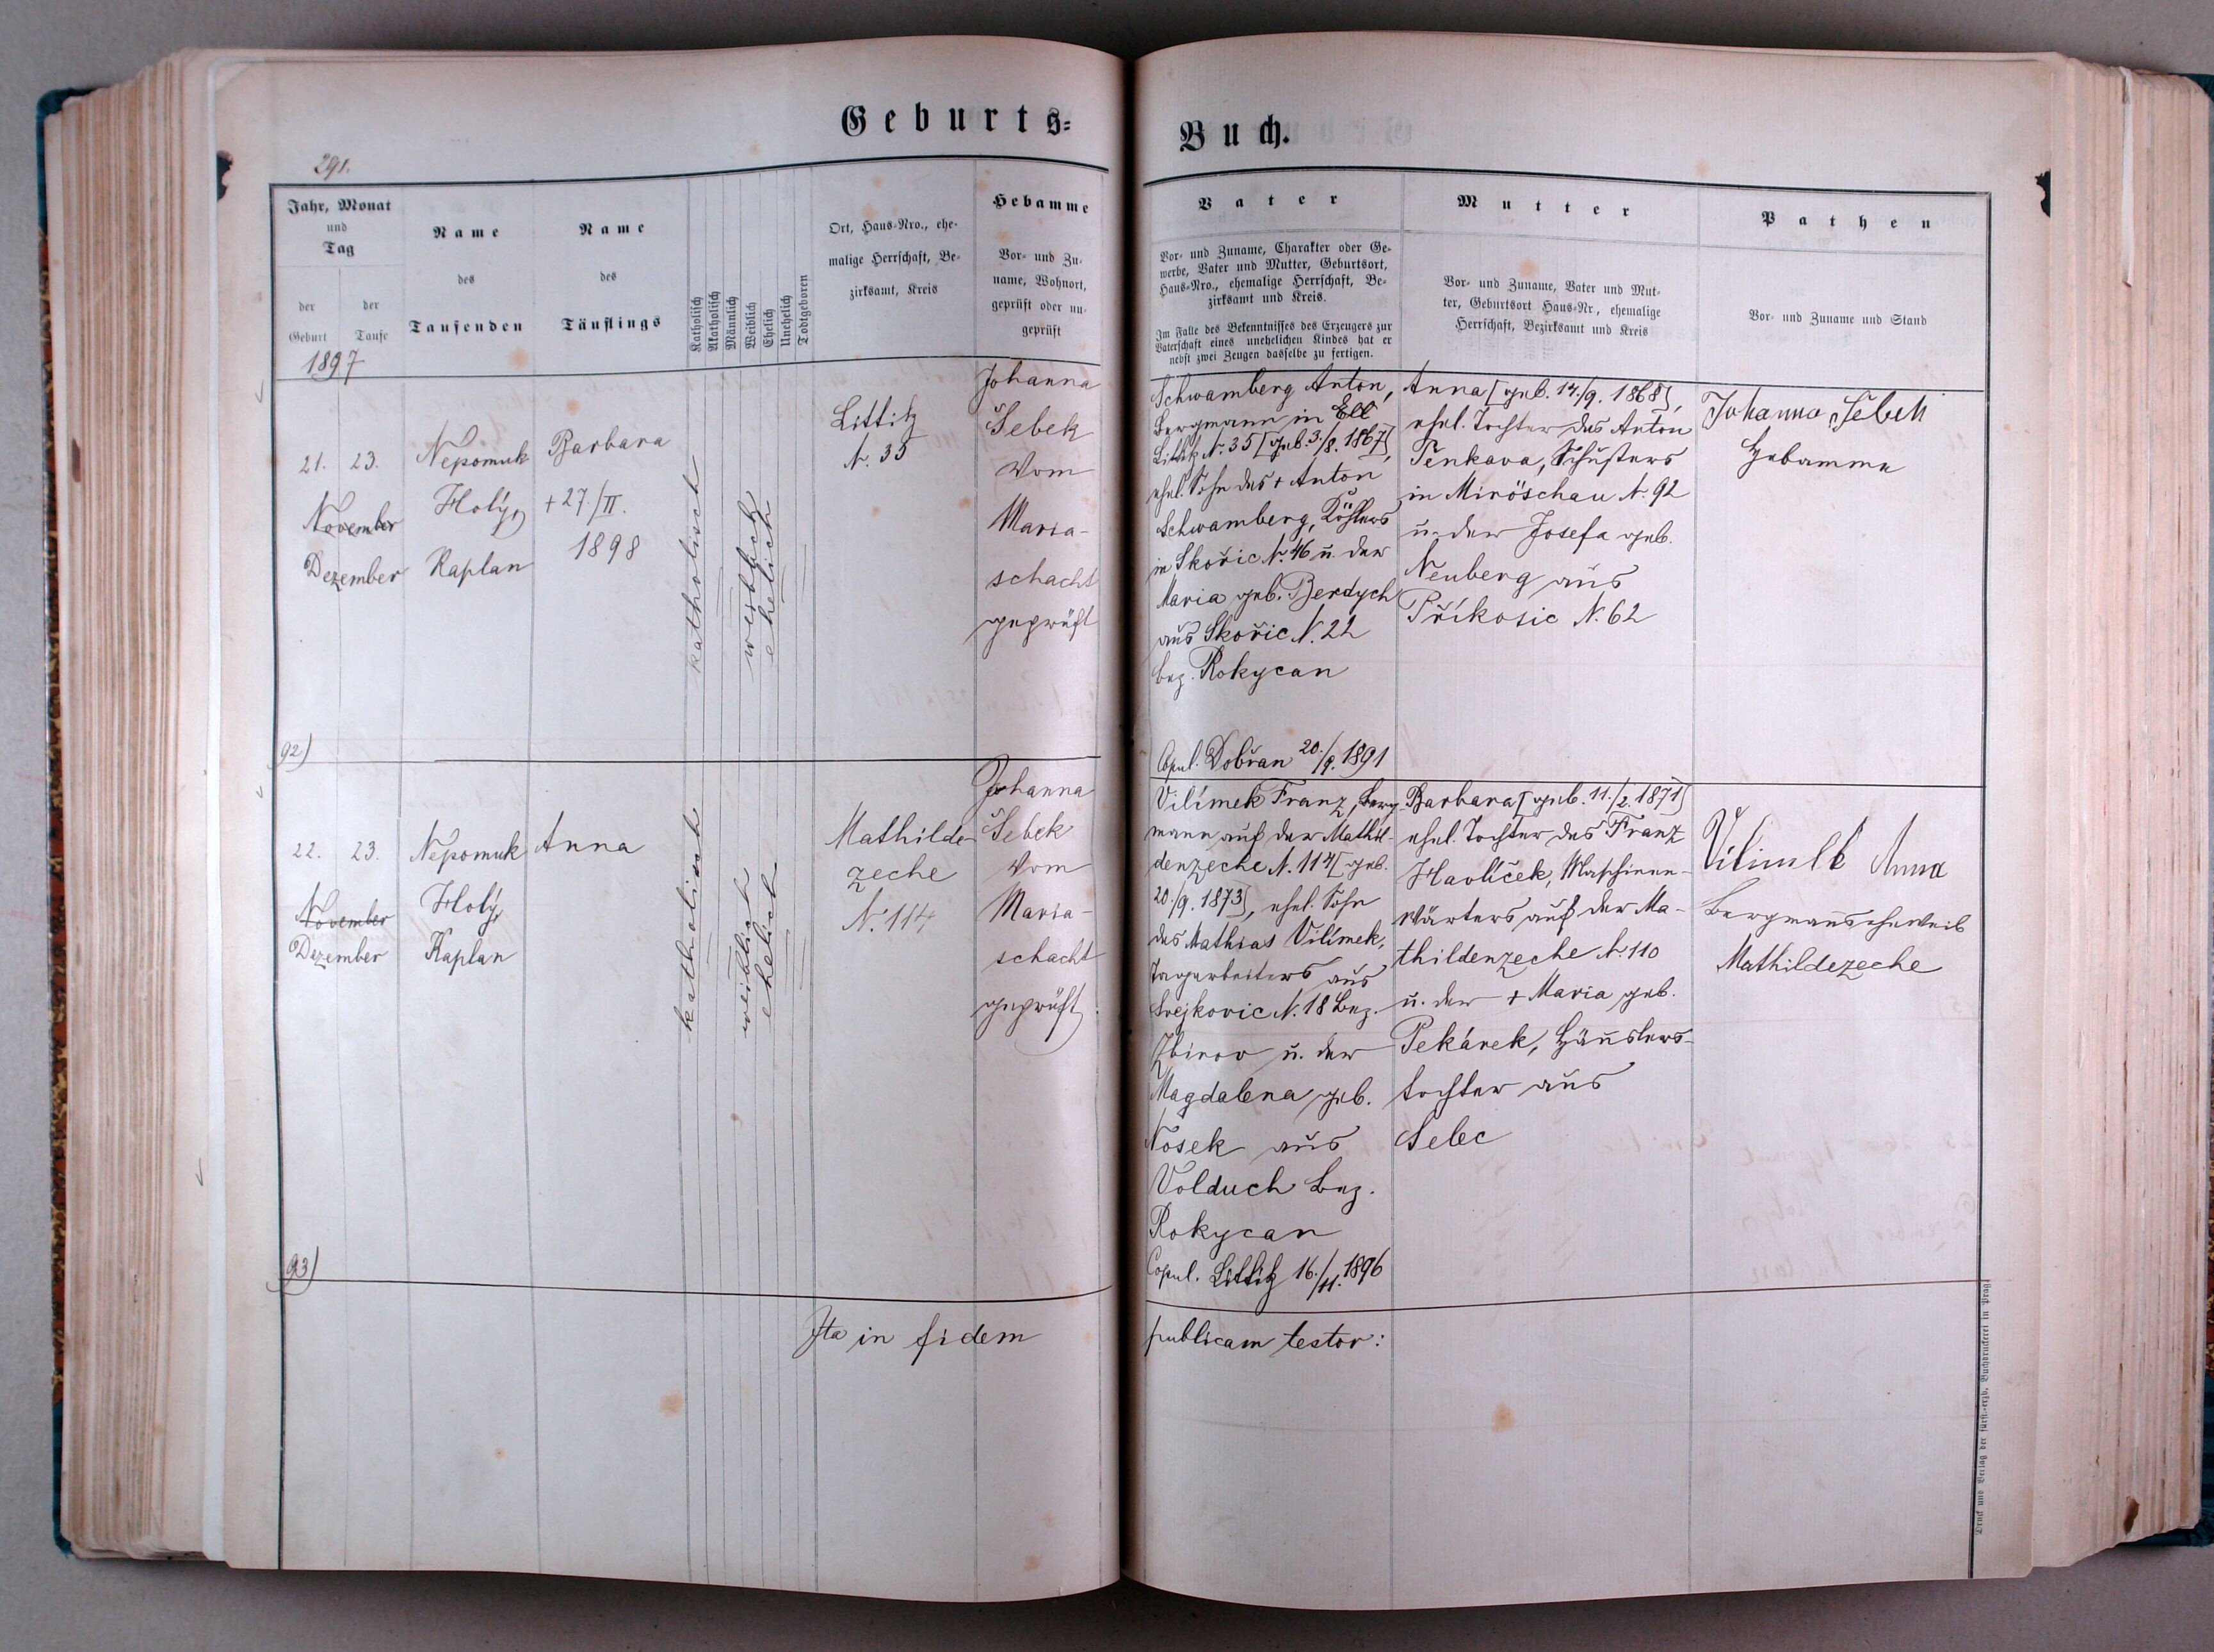 Geburts=
Buch.
291.
Jahr, Monat
und
Tag
der
Geburt
der
Taufe
Name
des
Taufenden
Name
des
Täuflings
Katholisch
Akatholisch
Männlich
Weiblich
Ehelich
Unehelich
Todtgeboren
Ort, Haus-Nro., ehe-
malige Herrschaft, Be-
zirksamt, Kreis
Hebamme
Vor- und Zu-
name, Wohnort,
geprüft oder un-
geprüft
Vater
Vor- und Zuname, Charakter oder Ge-
werbe, Vater und Mutter, Geburtsort,
Haus-Nro., ehemalige Herrschaft, Be-
zirksamt und Kreis.
Im Falle des Bekenntnisses des Erzeugers zur
Vaterschaft eines unehelichen Kindes hat er
nebst zwei Zeugen dasselbe zu fertigen.
Mutter
Vor- und Zuname, Vater und Mut-
ter, Geburtsort Haus-Nr, ehemalige
Herrschaft, Bezirksamt und Kreis
Pathen
Vor- und Zuname und Stand
1897
21. 23.
November
Dezember
Nepomuk
Holý,
Kaplan
Barbara
+ 27./II.
1898
katholisch
weiblich
ehelich
Littitz
N. 35
Johanna
Šebek
vom
Maria-
schacht
geprüft
Schwamberg Anton,
Bergmann in
Littitz N. 35 [geb. 3./8. 1867],
ehel. Sohn des + Anton
Schwamberg,
in Skořic N. 46 u. der
Maria geb. Berdych
aus Skořic N. 22
Bez. Rokycan
Copul. Dobřan 20./9. 1891
Anna [geb. 14./9. 1868],
ehel. Tochter des Anton
Tenkava, Schusters
in Miröschau N. 92
u. der Josefa geb.
Neuberg aus
Příkosic N. 62
Johanna Šebek
Hebamme
92)
22. 23.
November
Dezember
Nepomuk
Holý,
Kaplan
Anna
katholisch
weiblich
ehelich
Mathilde-
zeche
N. 114
Johanna
Šebek
vom
Maria-
schacht
geprüft
Vilímek Franz, Berg-
mann auf der Mathil-
denzeche N. 114 [geb.
20./9. 1873], ehel. Sohn
des Mathias Vilímek,
Tagarbeiters aus
Svejkovic N. 18 Bez.
Zbirov u. der
Magdalena geb.
Nosek aus
Volduch Bez.
Rokycan
Copul. Littitz 16./11. 1896
Barbara [geb. 11./2. 1871]
ehel. Tochter des Franz
Havlíček, Maschinen-
wärters auf der Ma-
thildenzeche N. 110
u. der + Maria geb.
Pekárek, Häuslers-
tochter aus
Selec
Vilimek Anna
Bergmannseheweib
Mathildezeche
93)
Ita in fidem
publicam testor:
Druck und Verlag der fürst.-erzb. Buchdruckerei in Prag.